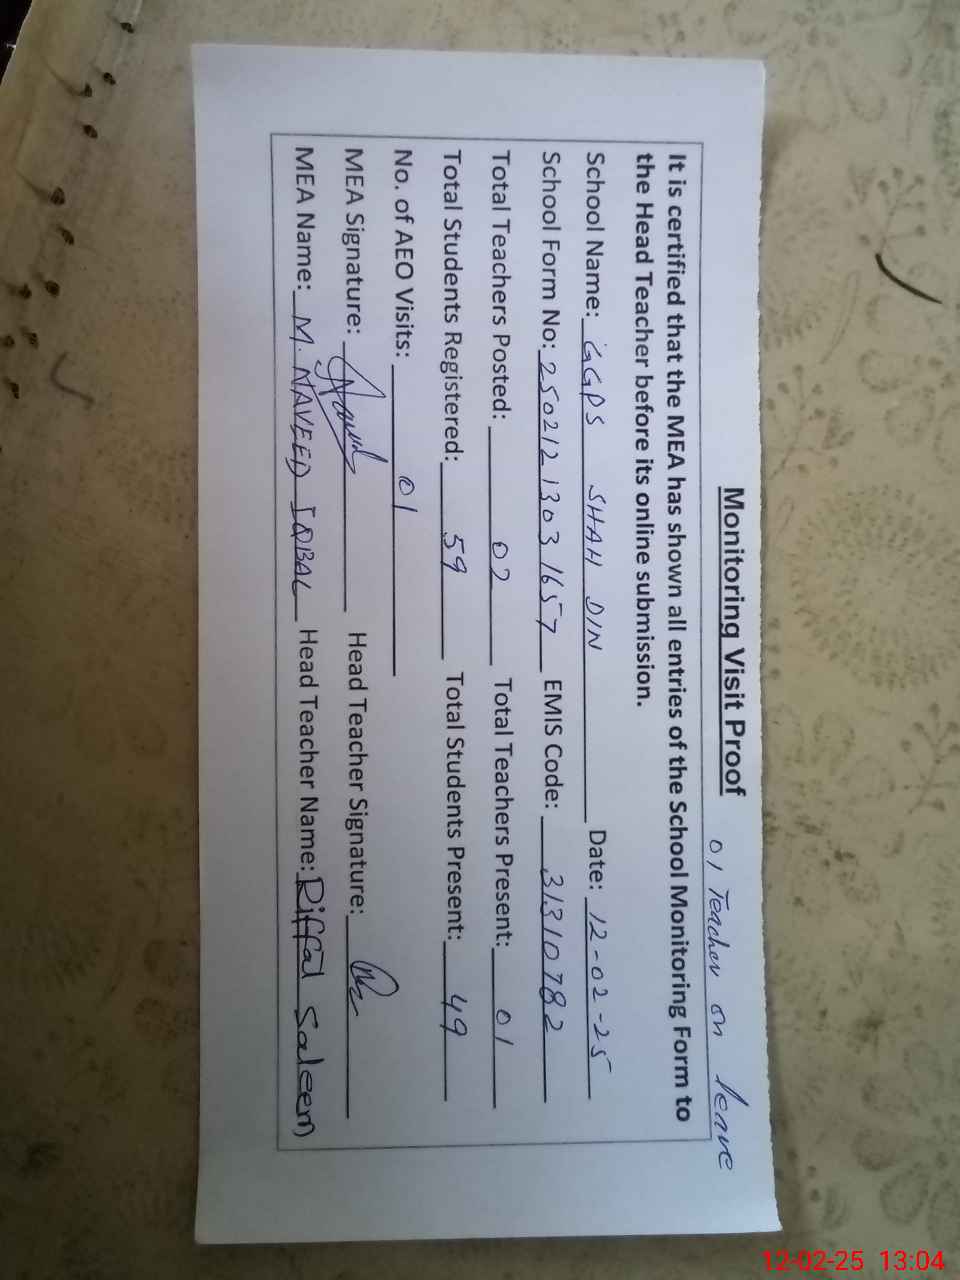 Monitoring Visit Proof
01 Teacher on leave
It is certified that the MEA has shown all entries of the School Monitoring Form to
the Head Teacher before its online submission.
School Name: GGPS SHAH DIN Date: 12-02-25
School Form No: 250212 1303 1657 EMIS Code: 31310782
Total Teachers Posted: 02 Total Teachers Present: 01
Total Students Registered: 59 Total Students Present: 49
No. of AEO Visits: 01
MEA Signature: Head Teacher Signature:
MEA Name: M. NAVEED IQBAL Head Teacher Name: Riffat Saleem
12-02-25 13:04